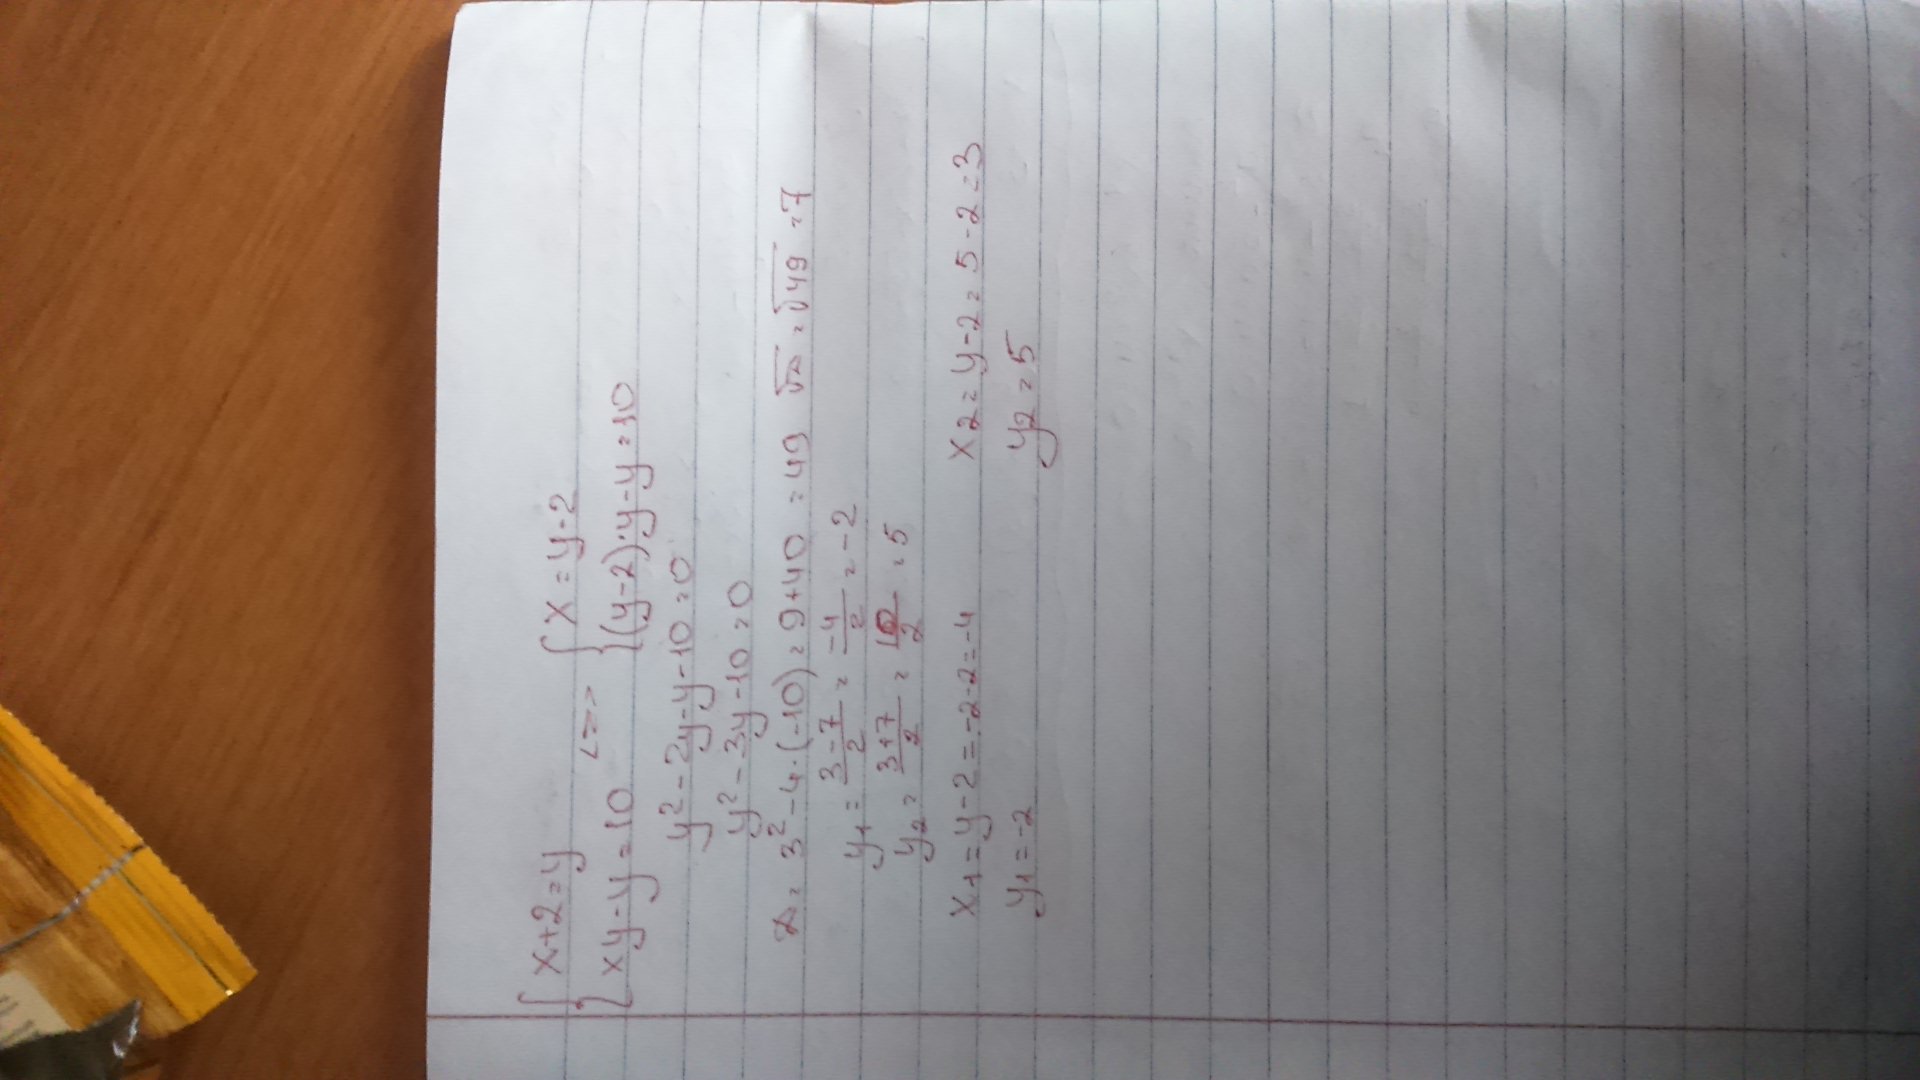 { x+2=y
{ xy-y=10 <=> { x=y-2
{ (y-2)·y-y=10
y²-2y-y-10=0
y²-3y-10=0
= 3²-4·(-10)=9+40=49 √ = √49 =7
y₁= (3-7)/2 = -4/2 = -2
y₂= (3+7)/2 = 10/2 = 5
x₁=y-2=-2-2=-4 x₂=y-2=5-2=3
y₁=-2 y₂=5